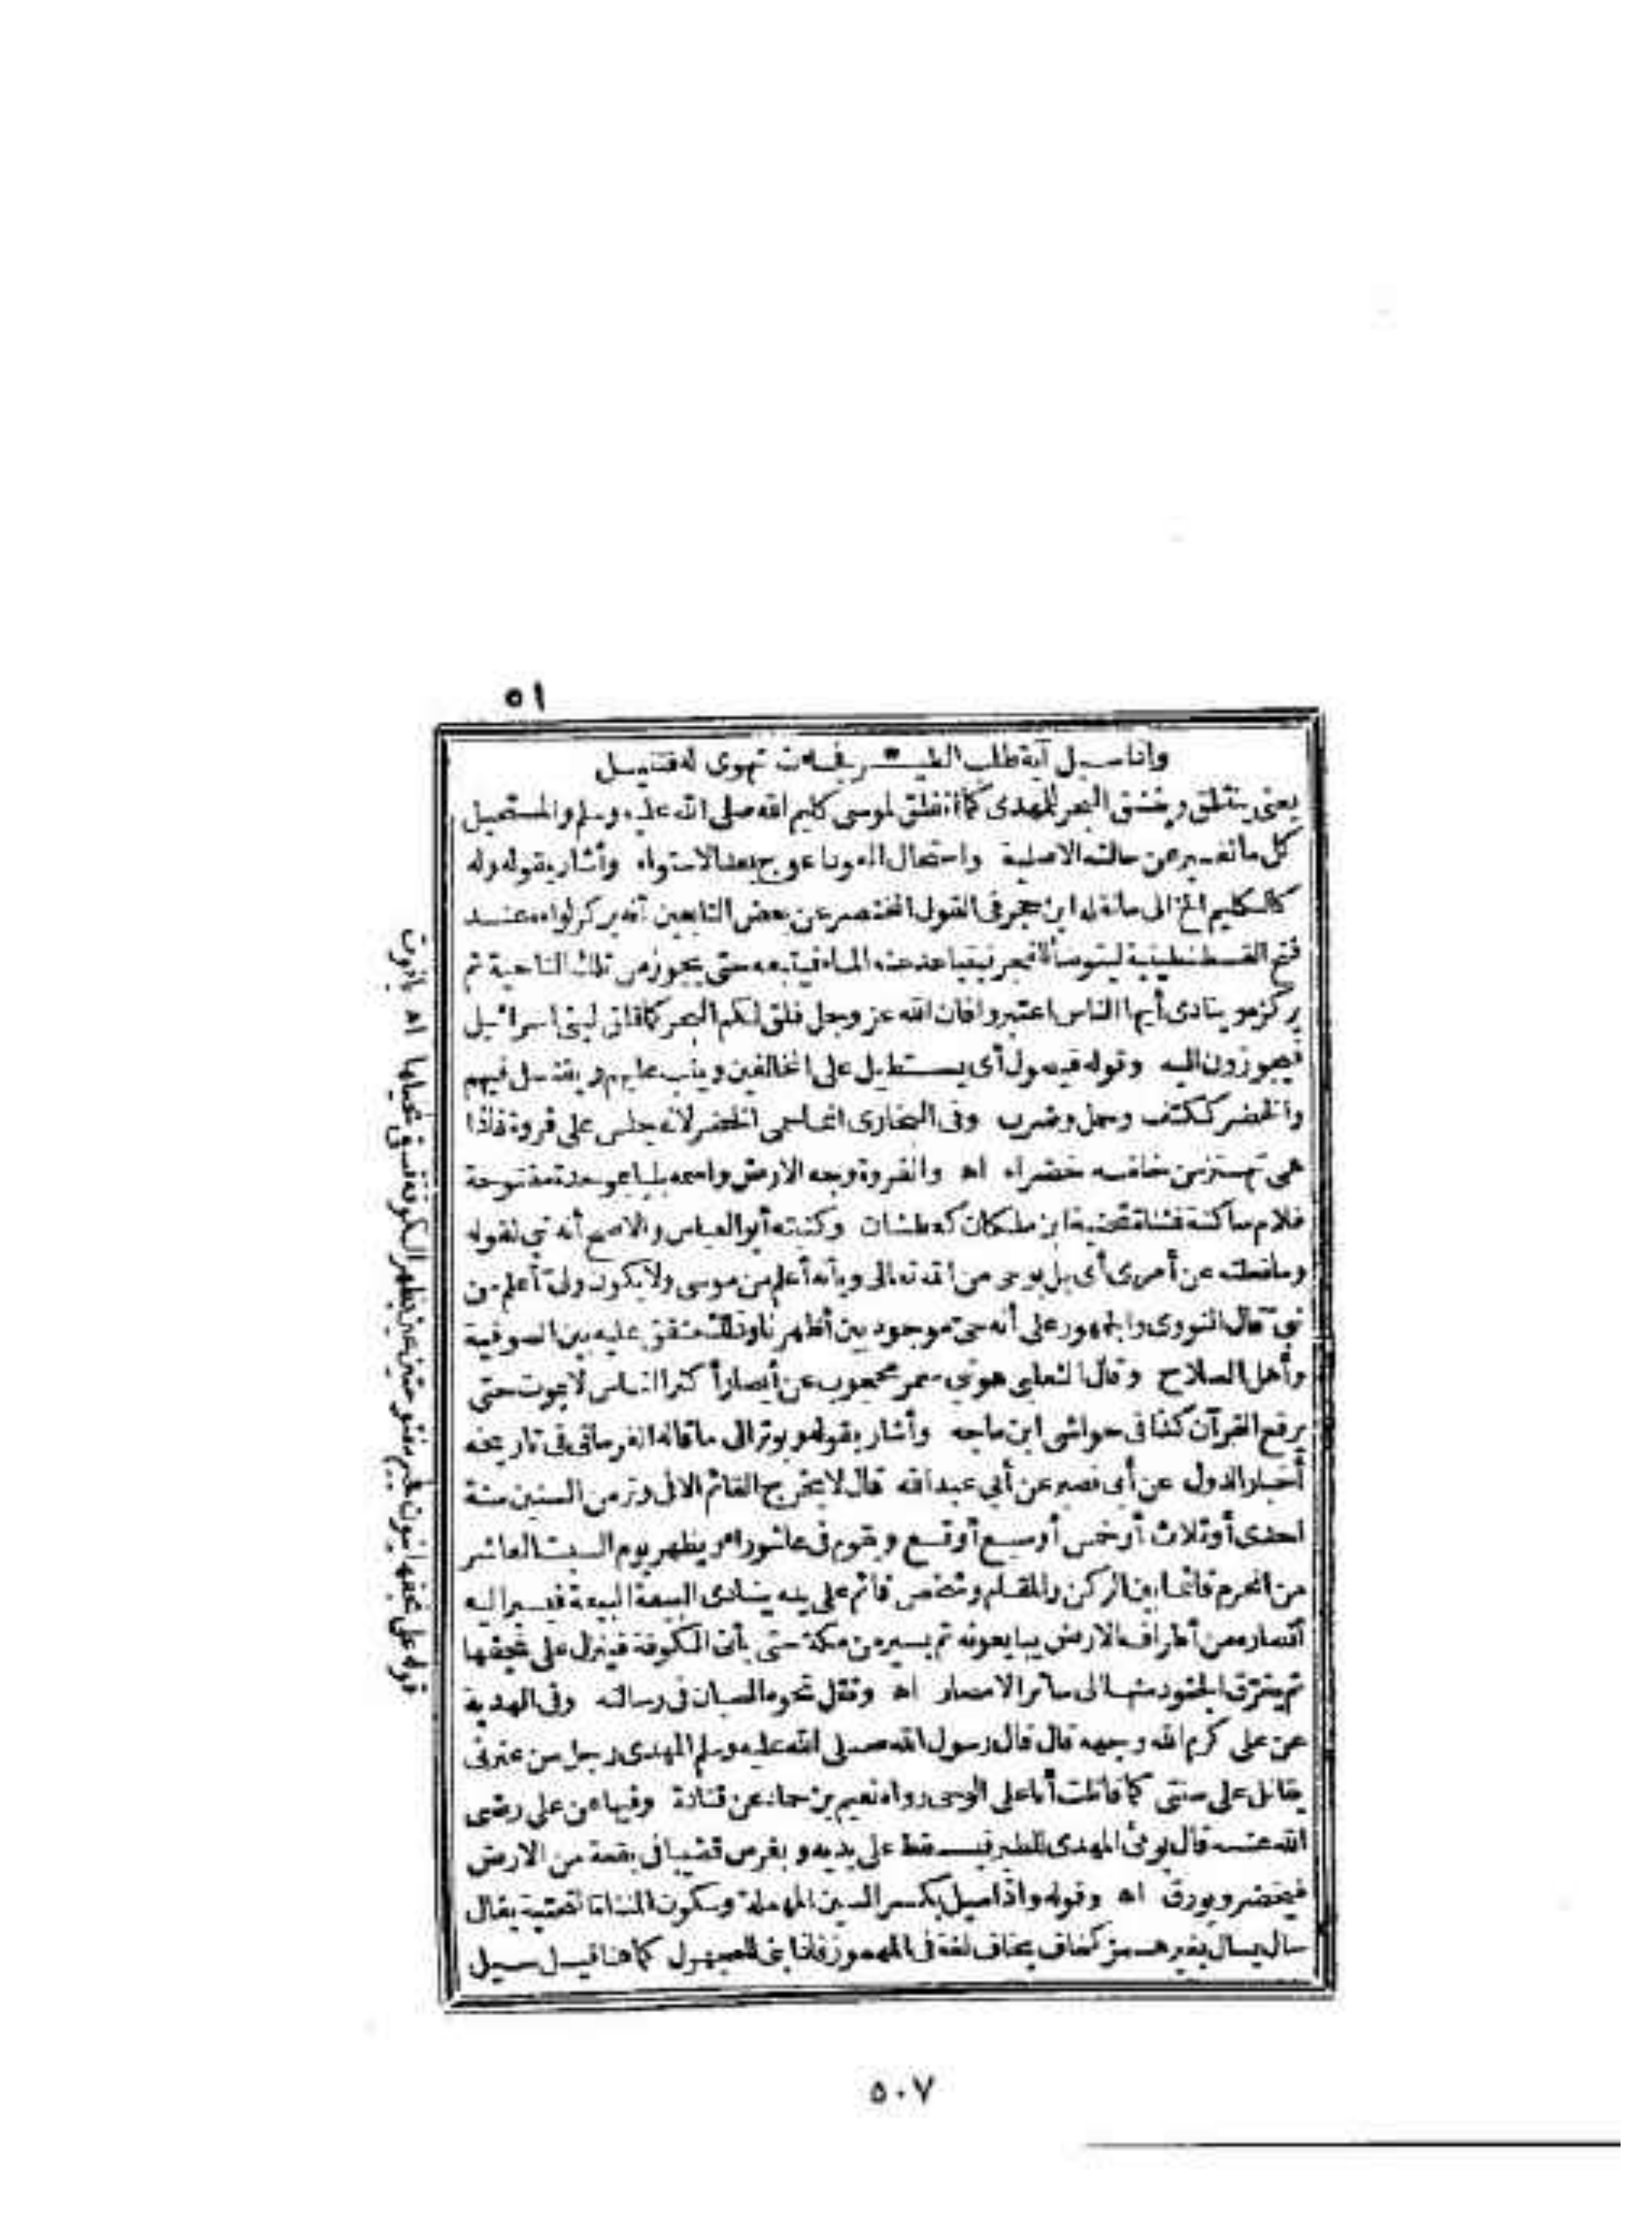 ٥١
واذا سيل آية طلب الطيـر فجاءت تهوى له فتنيل
يعنى ينفلق وينشق البحر للمهدى كما انفلق لموسى كليم الله صلى الله عليه وسلم والمستحيل
كل ما تغير عن حالته الاصلية واستحال العود اعوج بعد الاستواء وأشار بقوله وله
كالكليم الخ الى ما نقله ابن حجر فى القول المختصر عن بعض التابعين أنه يركز لواءه عند
فتح القسطنطينية ليتوضأ للفجر فيتباعد عنه الماء فيتبعه حتى يجوز من تلك الناحية ثم
يركزه وينادى أيها الناس اعتبروا فان الله عز وجل فلق لكم البحر كما فلق لبنى اسرائيل
فيجوزون اليه وقوله فيصول أى يستطيل على المخالفين ويثب عليهم ويقتل فيهم
والخضر ككتف وحمل وضرب وفى البخارى انما سمى الخضر لانه جلس على فروة فاذا
هى تهتز من خلفه خضراء اه والفروة وجه الارض واسمه بليا بموحدة مفتوحة
فلام ساكنة فمثناة تحتية ابن ملكان كعطشان وكنيته أبو العباس والاصح أنه نبى لقوله
وما فعلته عن أمرى أى بل بوحى من الله تعالى وبأنه أعلم من موسى ولا يكون ولى أعلم من
نبى قال النووى والجمهور على أنه حى موجود بين أظهرنا وذلك متفق عليه بين الصوفية
وأهل الصلاح وقال الثعلبى هو نبى معمر محجوب عن أبصار أكثر الناس لا يموت حتى
يرفع القرآن كذا فى حواشى ابن ماجه وأشار بقوله وبوتر الى ما قاله القرمانى فى تاريخه
أخبار الدول عن أبى نصير عن أبى عبد الله قال لا يخرج القائم الا فى وتر من السنين سنة
احدى أو ثلاث أو خمس أو سبع أو تسع ويقوم فى عاشوراء ويظهر يوم السبت العاشر
من المحرم قائما بين الركن والمقام وشخص قائم على يده ينادى البيعة البيعة فيسير اليه
أنصاره من أطراف الارض يبايعونه ثم يسير من مكة حتى يأتى الكوفة فينزل على نجفها
ثم يفرق الجنود منها الى سائر الامصار اه ونقل نحوه الصبان فى رسالته وفى الهدية
عن على كرم الله وجهه قال قال رسول الله صلى الله عليه وسلم المهدى رجل من عترتى
يقاتل على سنتى كما قاتلت أنا على الوحى رواه نعيم بن حماد عن قتادة وفيها عن على رضى
الله عنه قال يومئ المهدى للطير فيسقط على يديه ويغرس قضيبا فى بقعة من الارض
فيخضر ويورق اه وقوله واذا سيل بكسر السين المهملة وسكون المثناة التحتية يقال
سال يسال بغير همز كخاف يخاف لغة فى المهموز فاذا بنى للمجهول كما هنا قيل سيل
قوله على نجفها بنون فجيم مفتوحتين عين بظهر الكوفة تسقى نخيلها اه ياقوت
٥٠٧